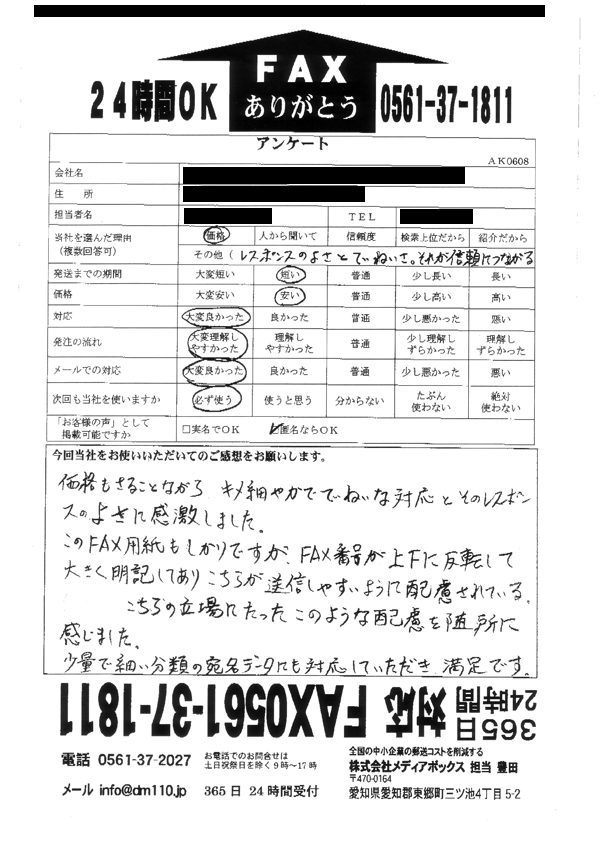 FAX
24時間OK ありがとう 0561-37-1811
アンケート
AK0608
会社名
住 所
担当者名 TEL
当社を選んだ理由 価格 人から聞いて 信頼度 検索上位だから 紹介だから
(複数回答可) その他 ( レスポンスのよさとていねいさ。それが信頼につながる
発送までの期間 大変短い 短い 普通 少し長い 長い
価格 大変安い 安い 普通 少し高い 高い
対応 大変良かった 良かった 普通 少し悪かった 悪い
発注の流れ 大変理解しやすかった 理解しやすかった 普通 少し理解しずらかった 理解しずらかった
メールでの対応 大変良かった 良かった 普通 少し悪かった 悪い
次回も当社を使いますか 必ず使う 使うと思う 分からない たぶん使わない 絶対使わない
「お客様の声」として
掲載可能ですか □実名でOK □匿名ならOK
今回当社をお使いいただいてのご感想をお願いします。
価格もさることながら キメ細やかでていねいな対応とそのレスポン
スのよさに感激しました。
このFAX用紙もしかりですが、FAX番号が上下に反転して
大きく明記してありこちらが送信しやすいように配慮されている。
こちらの立場にたったこのような配慮を随所に
感じました。
少量で細い分類の宛名データにも対応していただき 満足です。
365日
24時間 対応 FAX0561-37-1811
電話 0561-37-2027 お電話でのお問合せは
土日祝祭日を除く9時～17時
メール info@dm110.jp 365日 24時間受付
全国の中小企業の郵送コストを削減する
株式会社メディアボックス 担当 豊田
〒470-0164
愛知県愛知郡東郷町三ツ池4丁目5-2